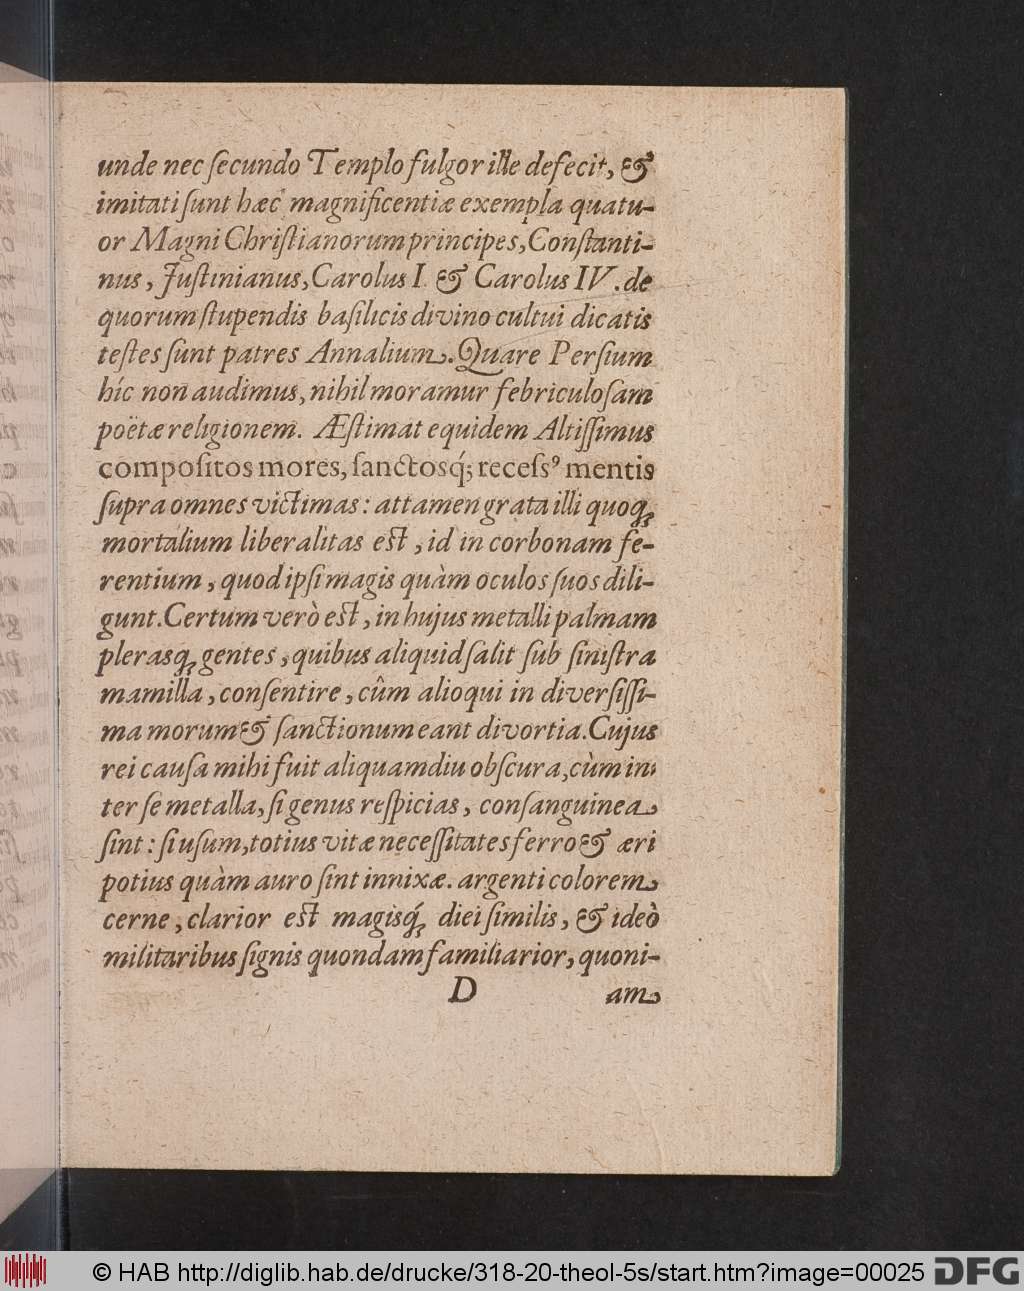 unde nec ſecundo Templo fulgor ille defecit, &
imitati ſunt hæc magnificentiæ exempla quatu-
or Magni Chriſtianorum principes, Conſtanti-
nus, Juſtinianus, Carolus I. & Carolus IV. de
quorum ſtupendis baſilicis divino cultui dicatis
teſtes ſunt patres Annalium. Quare Perſium
híc non audimus, nihil moramur febriculoſam
poëtæ religionem. Æſtimat equidem Altiſſimus
compoſitos mores, ſanctosq́; receſsꝰ mentis
ſupra omnes victimas: attamen grata illi quoq;
mortalium liberalitas eſt, id in corbonam fe-
rentium, quod ipſi magis quàm oculos ſuos dili-
gunt. Certum verò eſt, in hujus metalli palmam
plerasq; gentes, quibus aliquid ſalit ſub ſiniſtra
mamilla, conſentire, cûm alioqui in diverſiſſi-
ma morum & ſanctionum eant divortia. Cujus
rei cauſa mihi fuit aliquamdiu obſcura, cùm in-
ter ſe metalla, ſi genus reſpicias, conſanguinea
ſint: ſi uſum, totius vitæ neceſſitates ferro & æri
potius quàm auro ſint innixæ. argenti colorem
cerne, clarior eſt magisq́; diei ſimilis, & ideò
militaribus ſignis quondam familiarior, quoni-
D am
© HAB http://diglib.hab.de/drucke/318-20-theol-5s/start.htm?image=00025
DFG